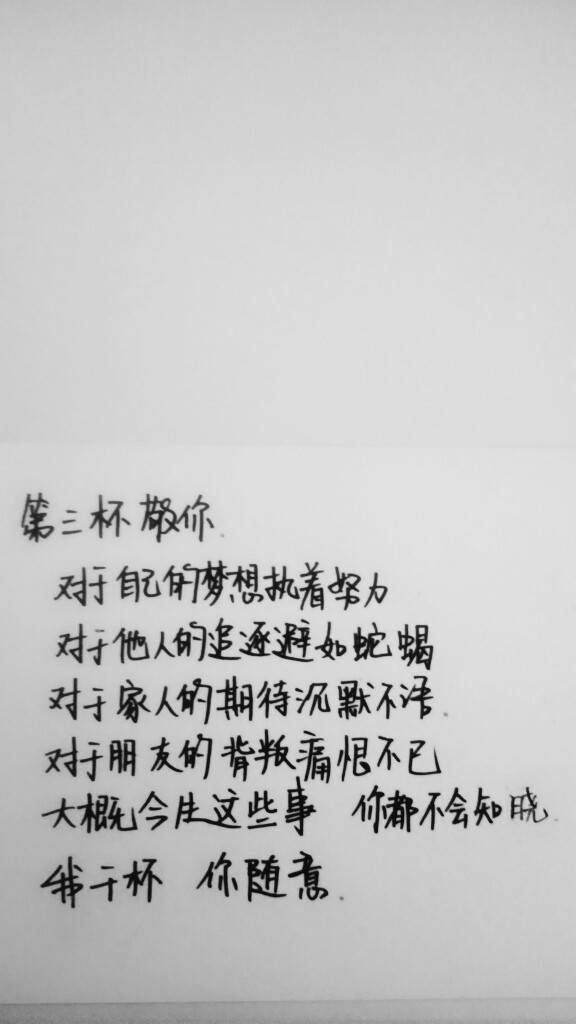 第三杯敬你.
对于自己的梦想执着努力
对于他人的追逐避如蛇蝎
对于家人的期待沉默不语.
对于朋友的背叛痛恨不已
大概今生这些事 你都不会知晓.
我干杯 你随意.